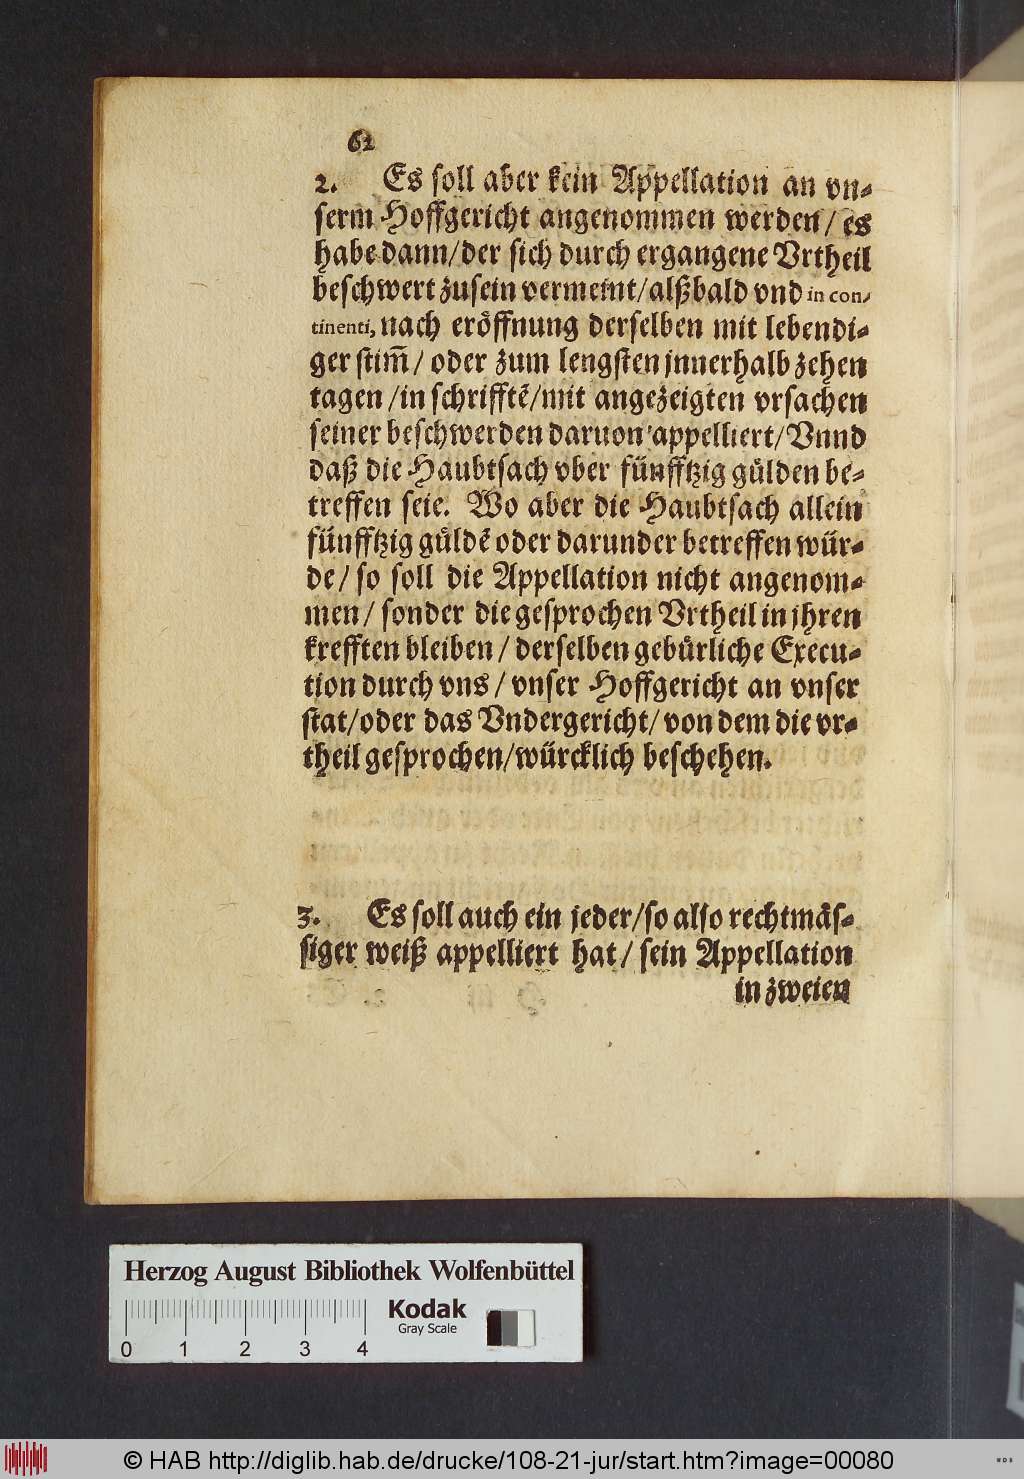 62
2. Es soll aber kein Appellation an vn⸗
serm Hoffgericht angenommen werden/ es
habe dann/ der sich durch ergangene Vrtheil
beschwert zusein vermeint/ alßbald vnd in con-
tinenti, nach eröffnung derselben mit lebendi⸗
ger stim̃/ oder zum lengsten jnnerhalb zehen
tagen/ in schrifftẽ/ mit angezeigten vrsachen
seiner beschwerden daruon appelliert/ Vnnd
daß die Haubtsach vber fünfftzig gülden be⸗
treffen seie. Wo aber die Haubtsach allein
fünfftzig güldẽ oder darunder betreffen wür⸗
de/ so soll die Appellation nicht angenom⸗
men/ sonder die gesprochen Vrtheil in jhren
krefften bleiben/ derselben gebürliche Execu⸗
tion durch vns/ vnser Hoffgericht an vnser
stat/ oder das Vndergericht/ von dem die vr⸗
theil gesprochen/ würcklich beschehen.
3. Es soll auch ein jeder/ so also rechtmäs⸗
siger weiß appelliert hat/ sein Appellation
in zweien
Herzog August Bibliothek Wolfenbüttel
Kodak
Gray Scale
0 1 2 3 4
© HAB http://diglib.hab.de/drucke/108-21-jur/start.htm?image=00080